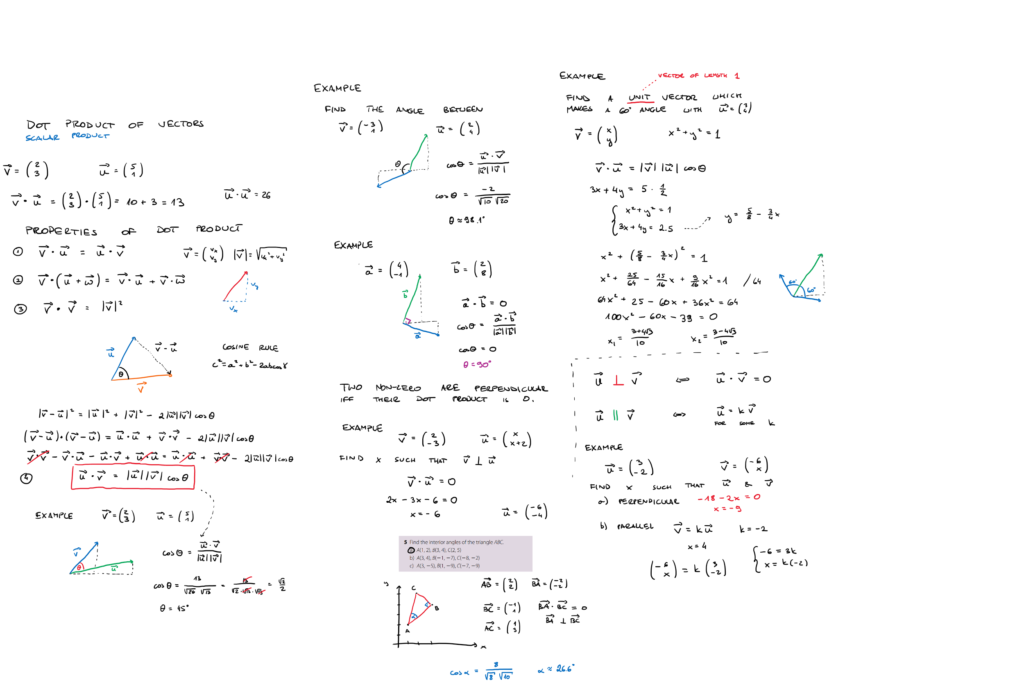 DOT PRODUCT OF VECTORS
SCALAR PRODUCT
v⃗ = (2 3) u⃗ = (5 1)
v⃗ · u⃗ = (2 3) · (5 1) = 10 + 3 = 13 u⃗ · u⃗ = 26
PROPERTIES OF DOT PRODUCT
① v⃗ · u⃗ = u⃗ · v⃗ v⃗ = (vx vy) |v⃗| = √(vx² + vy²)
② v⃗ · (u⃗ + w⃗) = v⃗ · u⃗ + v⃗ · w⃗
③ v⃗ · v⃗ = |v⃗|²
vy
vx
u⃗ v⃗ - u⃗ θ v⃗
COSINE RULE
c² = a² + b² - 2ab cos γ
|v⃗ - u⃗|² = |u⃗|² + |v⃗|² - 2|u⃗||v⃗| cos θ
(v⃗ - u⃗) · (v⃗ - u⃗) = u⃗ · u⃗ + v⃗ · v⃗ - 2|u⃗||v⃗| cos θ
v⃗ · v⃗ - v⃗ · u⃗ - u⃗ · v⃗ + u⃗ · u⃗ = u⃗ · u⃗ + v⃗ · v⃗ - 2|u⃗||v⃗| cos θ
④ u⃗ · v⃗ = |u⃗||v⃗| cos θ
EXAMPLE v⃗ = (2 3) u⃗ = (5 1)
v⃗ θ u⃗
cos θ = u⃗ · v⃗ / |u⃗||v⃗|
cos θ = 13 / √26 √13 = 13 / √2 · √13 · √13 = √2 / 2
θ = 45°
EXAMPLE
FIND THE ANGLE BETWEEN
v⃗ = (-3 1) u⃗ = (2 4)
θ
cos θ = u⃗ · v⃗ / |u⃗||v⃗|
cos θ = -2 / √10 √20
θ ≈ 98.1°
EXAMPLE
a⃗ = (4 -1) b⃗ = (2 8)
b⃗
a⃗
a⃗ · b⃗ = 0
cos θ = a⃗ · b⃗ / |a⃗||b⃗|
cos θ = 0
θ = 90°
TWO NON-ZERO ARE PERPENDICULAR
IFF THEIR DOT PRODUCT IS 0.
EXAMPLE
v⃗ = (2 -3) u⃗ = (x x+2)
FIND X SUCH THAT v⃗ ⊥ u⃗
v⃗ · u⃗ = 0
2x - 3x - 6 = 0
x = -6 u⃗ = (-6 -4)
5 Find the internal angles of the triangle ABC.
a) A(1, 2), B(3, 4), C(2, 5)
b) A(3, 4), B(-1, -7), C(-8, -2)
c) A(3, -5), B(1, -9), C(-7, -9)
C
B
α
A
AB⃗ = (2 2) BA⃗ = (-2 -2)
BC⃗ = (-1 1) BA⃗ · BC⃗ = 0
AC⃗ = (1 3) BA⃗ ⊥ BC⃗
cos α = 8 / √8 √10 α ≈ 26.6°
EXAMPLE VECTOR OF LENGTH 1
FIND A UNIT VECTOR WHICH
MAKES A 60° ANGLE WITH u⃗ = (3 4)
v⃗ = (x y) x² + y² = 1
v⃗ · u⃗ = |v⃗| |u⃗| cos θ
3x + 4y = 5 · 1/2
x² + y² = 1
3x + 4y = 2.5 y = 5/8 - 3/4 x
x² + (5/8 - 3/4 x)² = 1
x² + 25/64 - 15/16 x + 9/16 x² = 1 / 64
64x² + 25 - 60x + 36x² = 64
100x² - 60x - 39 = 0
x₁ = 3+4√3 / 10 x₂ = 3-4√3 / 10
60° 60°
u⃗ ⊥ v⃗ ⇔ u⃗ · v⃗ = 0
u⃗ ∥ v⃗ ⇔ u⃗ = k v⃗
FOR SOME k
EXAMPLE
u⃗ = (3 -2) v⃗ = (-6 x)
FIND X SUCH THAT u⃗ & v⃗
a) PERPENDICULAR -18 - 2x = 0
x = -9
b) PARALLEL v⃗ = k u⃗ k = -2
x = 4
(-6 x) = k (3 -2)
-6 = 3k
x = k(-2)